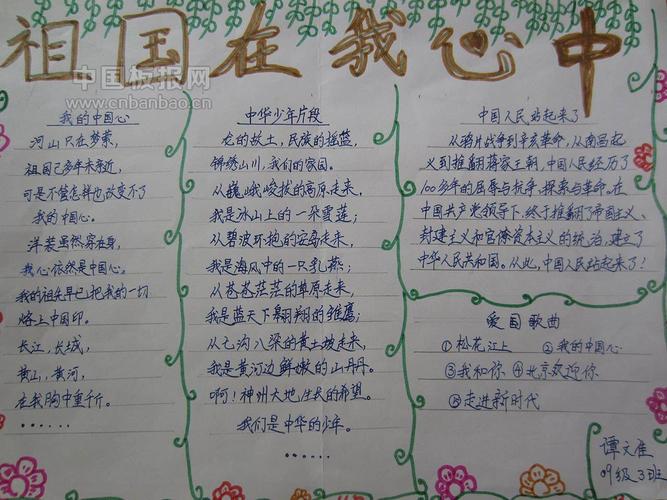 祖国在我心中
中国板报网
www.cnbanbao.cn
我的中国心
河山只在梦萦,
祖国已多年未亲近,
可是不管怎样也改变不了
我的中国心。
洋装虽然穿在身,
我心依然是中国心。
我的祖先早已把我的一切
烙上中国印。
长江,长城,
黄山,黄河,
在我胸中重千斤。
……
中华少年片段
龙的故土,民族的摇篮,
锦绣山川,我们的家园。
从巍峨峻拔的高原走来,
我是冰山上的一朵雪莲;
从碧波环抱的宝岛走来,
我是海风中的一只乳燕;
从苍苍茫茫的草原走来,
我是蓝天下翱翔的雏鹰;
从七沟八梁的黄土坡走来,
我是黄河边鲜嫩的山丹丹。
啊!神州大地生长的希望。
我们是中华的少年。
……
中国人民站起来了
从鸦片战争到辛亥革命,从南昌起
义到推翻蒋家王朝,中国人民经历了
100多年的屈辱与抗争、探索与革命。在
中国共产党领导下,终于推翻了帝国主义、
封建主义和官僚资本主义的统治,建立了
中华人民共和国。从此,中国人民站起来了!
爱国歌曲
①松花江上 ②我的中国心
③我和你 ④北京欢迎你
⑤走进新时代
谭文佳
09级3班